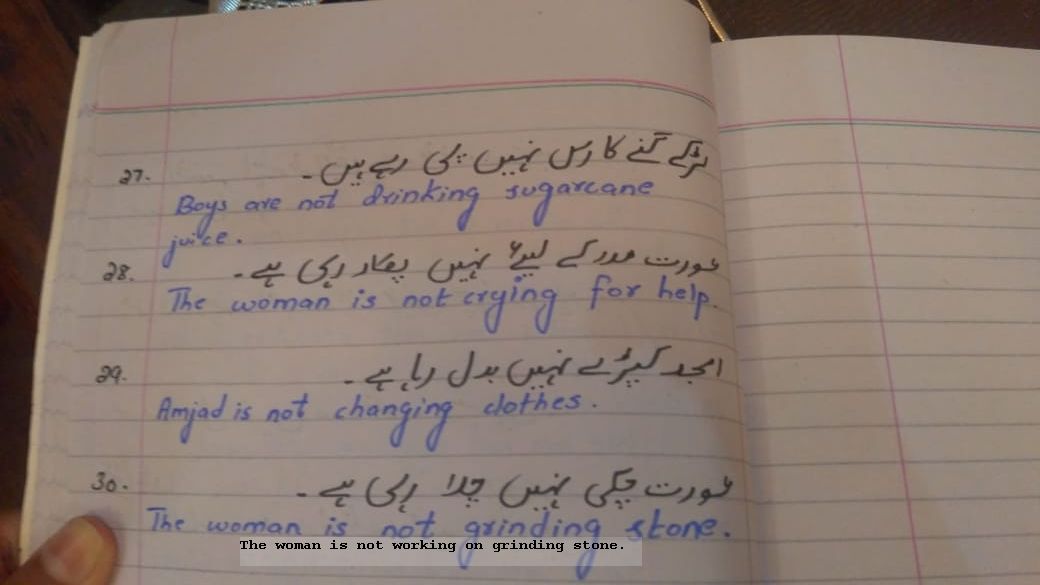 27. لڑکے گنے کا رس نہیں پی رہے ہیں۔
Boys are not drinking sugarcane
juice.
28. عورت مدد کے لیئے نہیں پکار رہی ہے۔
The woman is not crying for help.
29. امجد کپڑے نہیں بدل رہا ہے۔
Amjad is not changing clothes.
30. عورت چکی نہیں چلا رہی ہے۔
The woman is not grinding stone.
The woman is not working on grinding stone.